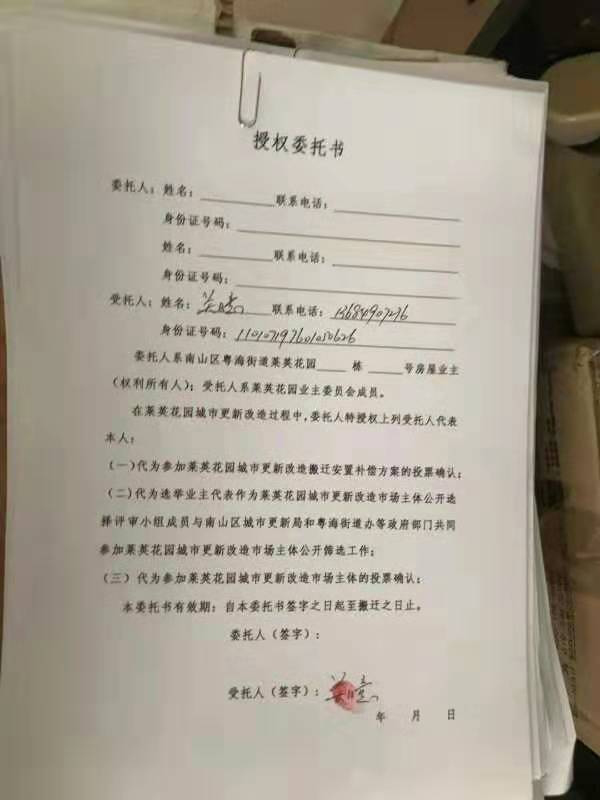 授权委托书
委托人：姓名：__________联系电话：__________
身份证号码：__________
姓名：__________联系电话：__________
身份证号码：__________
受托人：姓名：联系电话：13684907276
身份证号码：110107197601050626
委托人系南山区粤海街道莱英花园____栋____号房屋业主
(权利所有人)；受托人系莱英花园业主委员会成员。
在莱英花园城市更新改造过程中,委托人特授权上列受托人代表
本人：
(一)代为参加莱英花园城市更新改造搬迁安置补偿方案的投票确认；
(二)代为选举业主代表作为莱英花园城市更新改造市场主体公开选
择评审小组成员与南山区城市更新局和粤海街道办等政府部门共同
参加莱英花园城市更新改造市场主体公开筛选工作；
(三)代为参加莱英花园城市更新改造市场主体的投票确认；
本委托书有效期：自本委托书签字之日起至搬迁之日止。
委托人(签字)：
受托人(签字)：
年 月 日